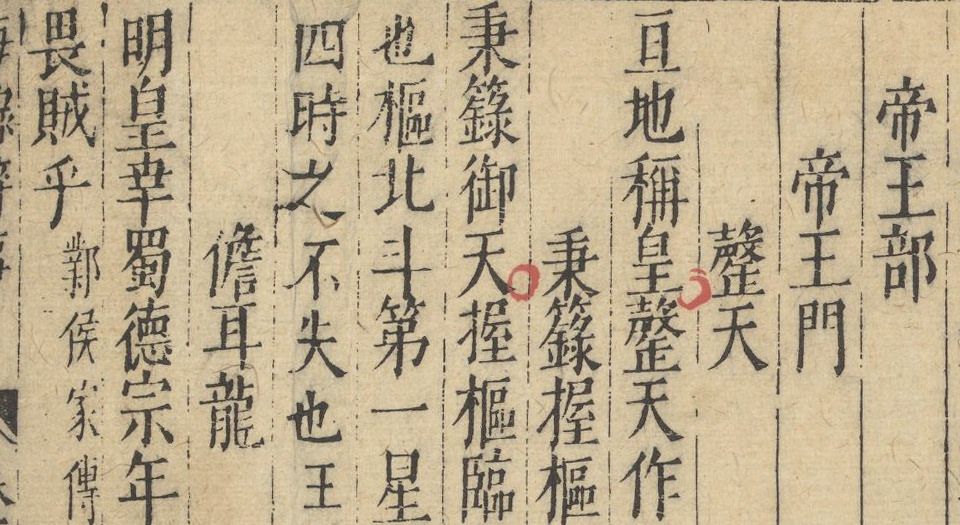 帝王部
帝王門
罄天
亘地稱皇罄天作
秉籙握樞
秉籙御天握樞臨
也樞北斗第一星
四時之不失也王
儋耳龍
明皇幸蜀德宗年
畏賊乎鄴侯家傳